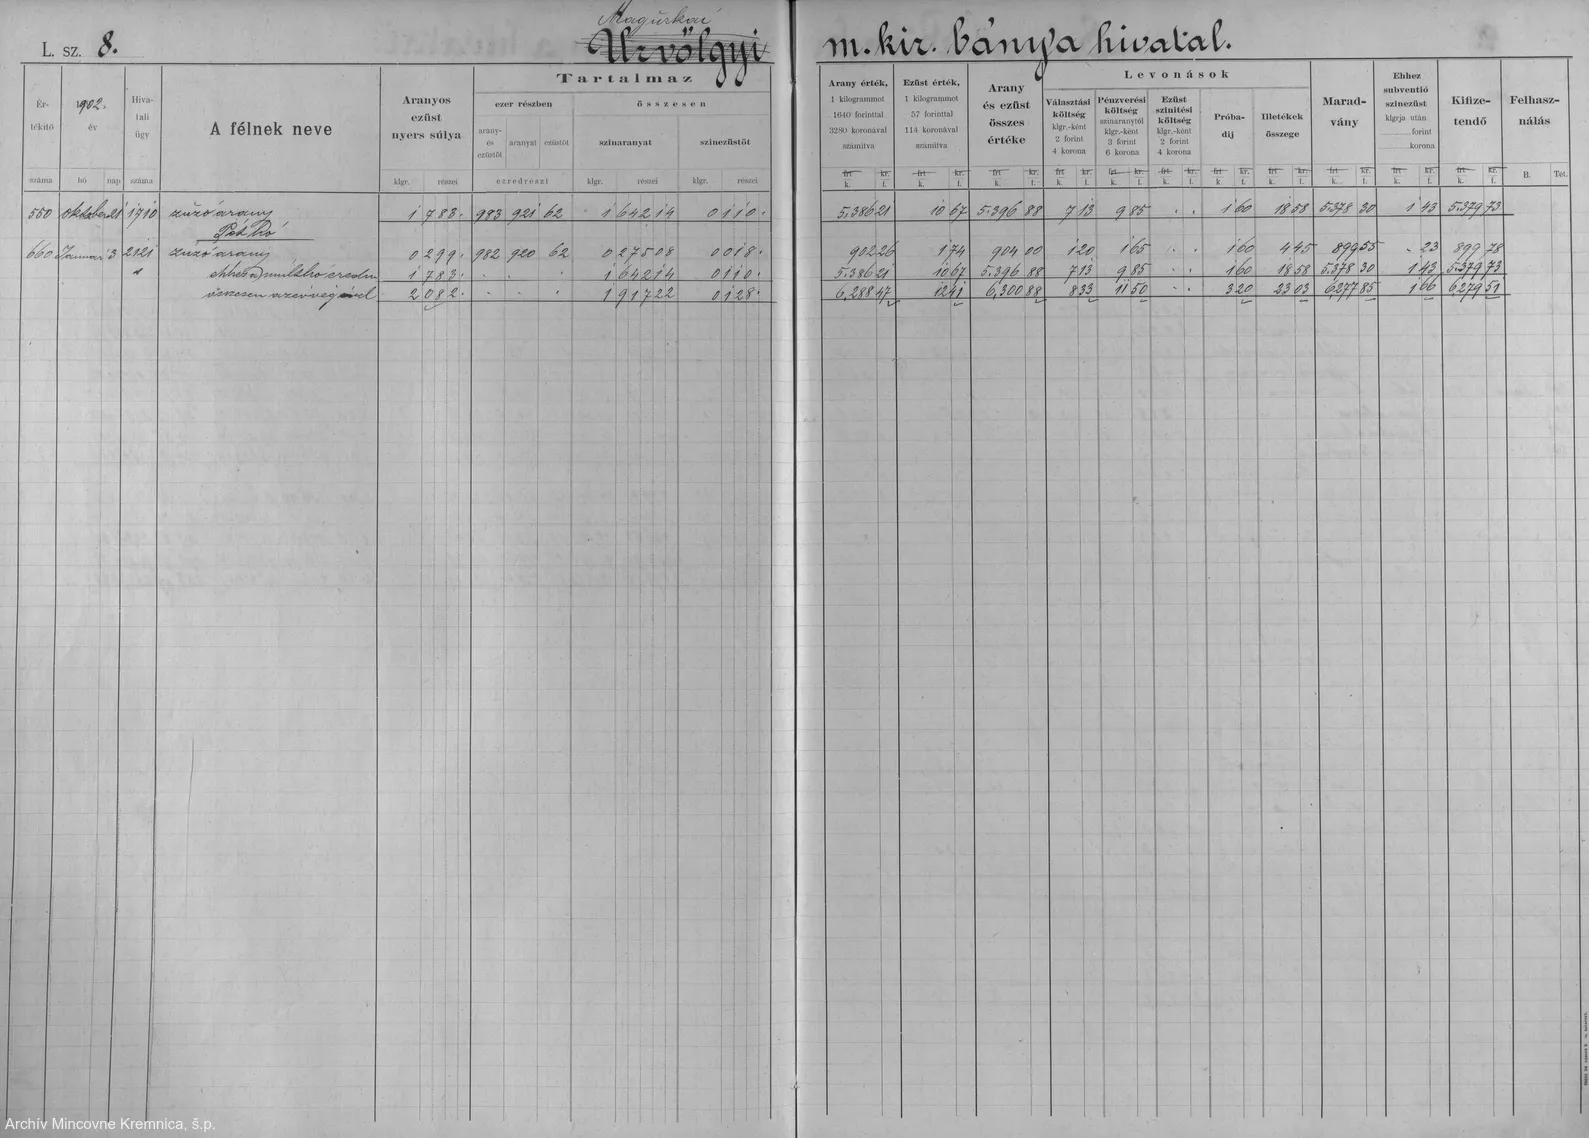 L. sz. 8.
Magurkai
Úrvölgyi m. kir. bánya hivatal.
Ér-
tékitő
száma
1902.
év
hó nap
Hiva-
tali
ügy
száma
A félnek neve
Aranyos
ezüst
nyers súlya
klgr. részei
Tartalmaz
ezer részben
arany-
és
ezüstöt
aranyat
ezüstöt
ezredrészi
összesen
szinaranyat
klgr. részei
szinezüstöt
klgr. részei
Arany érték,
1 kilogrammot
1640 forinttal
3280 koronával
számitva
frt kr.
k. f.
Ezüst érték,
1 kilogrammot
57 forinttal
114 koronával
számitva
frt kr.
k. f.
Arany
és ezüst
összes
értéke
frt kr.
k. f.
Levonások
Választási
költség
klgr.-ként
2 forint
4 korona
frt kr.
k. f.
Pénzverési
költség
szinaranytól
klgr.-ként
3 forint
6 korona
frt kr.
k. f.
Ezüst
szinitési
költség
klgr.-ként
2 forint
4 korona
frt kr.
k. f.
Próba-
dij
frt kr.
k. f.
Illetékek
összege
frt kr.
k. f.
Marad-
vány
frt kr.
k. f.
Ehhez
subventió
szinezüst
klgrja után
forint
korona
frt kr.
k. f.
Kifize-
tendő
frt kr.
k. f.
Felhasz-
nálás
B. Tét.
550 október 21 1710 zúzó arany 1 783. 983 921 62 1 64214 0 110. 5.386 21 10 67 5.396 88 7 13 9 85 . . 1 60 18 58 5.378 30 1 43 5.379 73
660 Január 3 2121 zúzó arany 0 299. 982 920 62 0 27508 0 018. 902 26 1 74 904 00 1 20 1 65 1 60 4 45 899 55 - 23 899 78
1 783. 1 64214 0 110. 5.386 21 10 67 5.396 88 7 13 9 85 1 60 18 58 5.378 30 1 43 5.379 73
összesen az év végével 2 082. 1 91722 0 128. 6,288 47 12 41 6,300 88 8 33 11 50 . . 3 20 23 03 6,277 85 1 66 6,279 51
Archív Mincovne Kremnica, š.p.